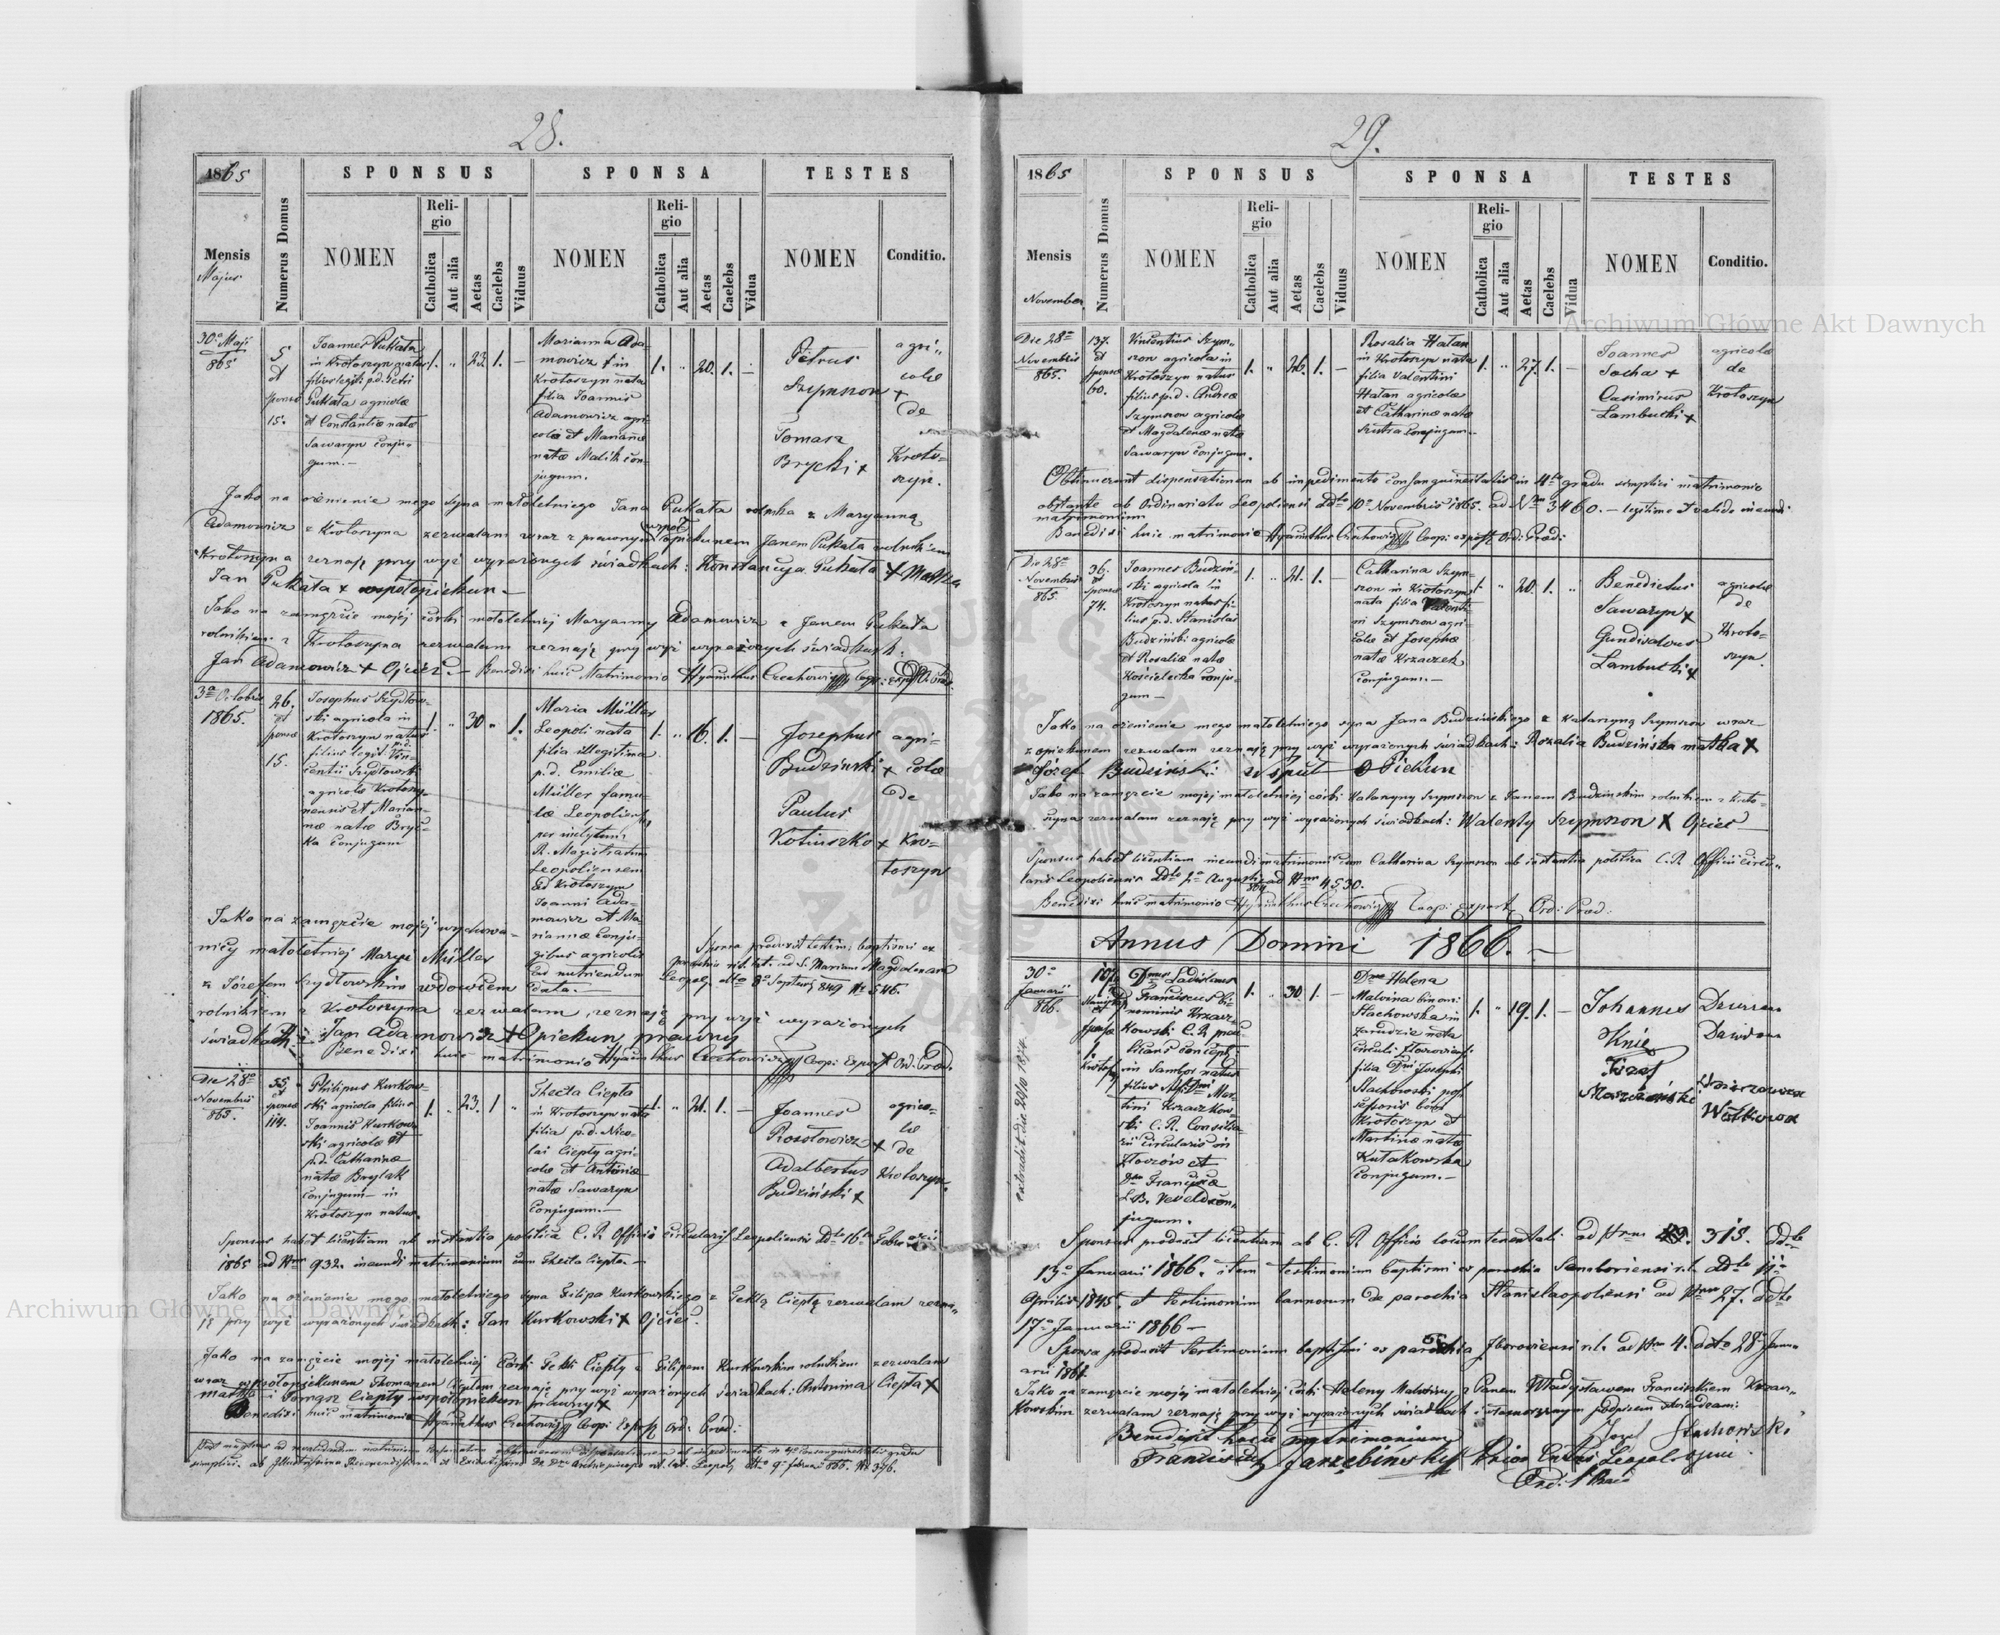 28.
1865
SPONSUS
SPONSA
TESTES
Mensis
Majus
Numerus Domus
NOMEN
Religio
Catholica
Aut alia
Aetas
Caelebs
Viduus
NOMEN
Religio
Catholica
Aut alia
Aetas
Caelebs
Vidua
NOMEN
Conditio.
30a Maji
865
5
et
sponsæ
15.
Joannes Pukała
in Krotoszyn natus
filius legit: p.d. Petri
Pukała agricolæ
et Constantiæ natæ
Sawaryn conju-
gum.-
1. " 23. 1. -
Marianna Ada-
mowicz in
Krotoszyn nata
filia Joannis
Adamowicz agri-
colæ et Mariannæ
natæ Malik con-
jugum.
1. " 20. 1. -
Petrus
Szymson +
Tomasz
Brycki +
agri-
colæ
de
Kroto-
szyn.
Jako na ożenienie mego syna małoletniego Jana Pukała rolnika z Maryanną
Adamowicz z Krotoszyna zezwalam wraz z prawnym współopiekunem Janem Pukała rolnikiem
z Krotoszyna zeznaję przy wyż wyrażonych świadkach: Konstancya Pukała + Matka
Jan Pukała + współopiekun -
Jako na zamęźcie mojej córki małoletniej Maryanny Adamowicz z Janem Pukała
rolnikiem z Krotoszyna zezwalam zeznaję przy wyż wyrażonych świadkach:
Jan Adamowicz + Ojciec. - Benedixi huic Matrimonio Hyacinthus Czechowicz Coop: Exp: Ord: Præd:
3a Octobris
1865.
26.
et
sponsæ
15.
Josephus Szydłow-
ski agricola in
Krotoszyn natus
filius legit: p.d. Vin-
centii Szydłowski
agricolæ Krotoszy-
nensis et Marian-
næ natæ Bryc-
ka Conjugum
1. " 30 " 1.
Maria Müller
Leopoli nata
filia illegitima
p.d. Emiliæ
Müller famu-
læ Leopoliensis
per inclytum
R. Magistratum
Leopoliensem
ad Krotoszyn
Joanni Ada-
mowicz et Ma-
riannæ Conju-
gibus agricolis
ad nutriendum
data.-
1. " 16. 1. -
Josephus
Budzinski +
Paulus
Kotiuszko +
agri-
colæ
de
Kro-
toszyn
Sponsa produxit testim: baptismi ex
parochia rit. lat. ad S. Mariam Magdalenam
Leopoli ddto 8a Septembr 849 No 546.
Jako na zamęźcie mojej wychowa-
nicy małoletniej Maryi Müller
z Józefem Szydłowskim wdowcem
rolnikiem z Krotoszyna zezwalam, zeznaję przy wyż wyrażonych
świadkach: Jan Adamowicz + Opiekun prawny
Benedixi huic matrimonio Hyacinthus Czechowicz Coop: Expos: Ord: Præd.
Die 28a
Novembris
865.
55
et
sponsæ
114.
Philipus Kurkow-
ski agricola filius
Joannis Kurkow-
ski agricolæ et
p.d. Catharinæ
natæ Brylak
Conjugum - in
Krotoszyn natus.
1. " 23. 1 "
Thecla Ciepła
in Krotoszyn nata
filia p.d. Nico-
lai Ciepły agri-
colæ et Antoniæ
natæ Sawaryn
Conjugum.-
1. " 21. 1. -
Joannes
Rosołowicz +
Adalbertus
Budziński +
agrico-
læ
de
Krotoszyn.
Sponsus habet licentiam ab instantia politica C. R. Officio circulari Leopoliensi Ddto 16ta
1865 ad Nrum 932. ineundi matrimonium cum Thecla Ciepła.-
Jako na ożenienie mego małoletniego syna Filipa Kurkowskiego z Teklą Ciepłą zezwalam zezna-
ję przy wyż wyrażonych świadkach: Jan Kurkowski + Ojciec.
Jako na zamęźcie mojej małoletniej Córki Tekli Ciepły z Filipem Kurkowskim rolnikiem zezwalam
wraz współopiekunem Thomaszem Ciepłem zeznaję przy wyż wyrażonych świadkach: Antonina Ciepła +
matka i Tomasz Ciepły współopiekun prawny +
Benedixi huic matrimonio Hyacinthus Czechowicz Coop: Expos: Ord: Præd:
29.
1865
SPONSUS
SPONSA
TESTES
Mensis
November
Numerus Domus
NOMEN
Religio
Catholica
Aut alia
Aetas
Caelebs
Viduus
NOMEN
Religio
Catholica
Aut alia
Aetas
Caelebs
Vidua
NOMEN
Conditio.
Die 28a
Novembris
865.
137.
et
sponsæ
60.
Vincentius Szym-
son agricola in
Krotoszyn natus
filius p.d. Andreæ
Szymson agricolæ
et Magdalenæ natæ
Sawaryn Conjugum.
1. " 26. 1. -
Rosalia Hatan
in Krotoszyn nata
filia Valentini
Hatan agricolæ
et Catharinæ natæ
Szustra Conjugum.-
1. " 27. 1. -
Joannes
Socha +
Casimirus
Lambucki +
agricolæ
de
Krotoszyn
Obtinuerunt dispensationem ab impedimento consanguinitatis in 4to gradu simplici matrimonio
obstante ab Ordinariatu Leopoliensi ddto 10a Novembris 1865. ad Nrum 3460. - legitime et valide ineundi
matrimonium
Benedixi huic matrimonio Hyacinthus Czechowicz Coop: expos: Ord: Præd:
Die 28a
Novembris
865.
36.
et
sponsæ
74.
Joannes Budziń-
ski agricola in
Krotoszyn natus fi-
lius p.d. Stanislai
Budziński agricolæ
et Rosaliæ natæ
Kościelecka Conju-
gum -
1. " 21. 1. -
Catharina Szym-
son in Krotoszyn
nata filia Valenti-
ni Szymson agri-
colæ et Josephæ
natæ Krzaczek
Conjugum.-
1. " 20. 1. "
Benedictus
Sawaryn +
Gundisalvus
Lambucki +
agricolæ
de
Kroto-
szyn.
Jako na ożenienie mego małoletniego syna Jana Budzińskiego z Katarzyną Szymson wraz
z opiekunem zezwalam zeznaję przy wyż wyrażonych świadkach: Rozalia Budzińska matka +
Józef Budzinski wsput Opiekun
Jako na zamęźcie mojej małoletniej córki Katarzyny Szymson z Janem Budzinskim rolnikiem z Kroto-
szyna zezwalam zeznaję przy wyż wyrażonych świadkach: Walenty Szymson + Ojciec -
Sponsus habet licentiam ineundi matrimonii cum Catharina Szymson ab instantia politica C. R. Officii circu-
laris Leopoliensis Ddto 2a Augusti 864 ad Nrum 4530.
Benedixi huic matrimonio Hyacinthus Czechowicz Coop: Expos: Ord: Præd:
Annus Domini 1866. -
30a
Januarii
866.
107.
et
sponsæ
1.
Krotoszyn
extradit die 20/10 1874.
Dnus Ladislaus
Franciscus bi-
nominis Krzacz-
kowski C. R. prac-
ticans concept:
in Sambor natus
filius Mgfci Mar-
tini Krzaczkow-
ski C. R. Consilia-
rii Circularis in
Złoczów et
Dnæ Franciscæ
L.B. Conju-
jugum.
1. " 30 1. -
Dna Helena
Malvina binomi:
Stachowska in
Zarudzie nata
Circuli Złoczoviensi
filia Dni Josephi
Stachowski pos-
sessoris bon:
Krotoszyn et
Martinæ natæ
Kutakowska
Conjugum.-
1. " 19. 1. -
Johannes
Knie
Józef
Marciński
Sponsus produxit licentiam ab C. R. Officio locumtenentali ad Nrum 313. Ddto
13a Januarii 1866. item testimonium baptismi ex parochia Samboriensi r.l. Ddto 11a
Aprilis 1845, et testimonium bannorum de parochia Stanislaopoliensi ad Nrum 27. ddto
17a Januarii 1866 -
Sponsa produxit testimonium baptismi ex parochia Zboroviensi r.l. ad Nrum 4. ddto 28a Janu-
arii 1861.
Jako na zamęźcie mojej małoletniej córki Heleny Malwiny z Panem Władysławem Franciszkiem Krzacz-
kowskim zezwalam zeznaję przy wyż wyrażonych świadkach i własnoręcznym podpisem stwierdzam:
Józef Stachowski
Benedixit huic matrimonium
Franciscus Jarzębiński Prior Ord: Præd
Archiwum Główne Akt Dawnych
Archiwum Główne Akt Dawnych